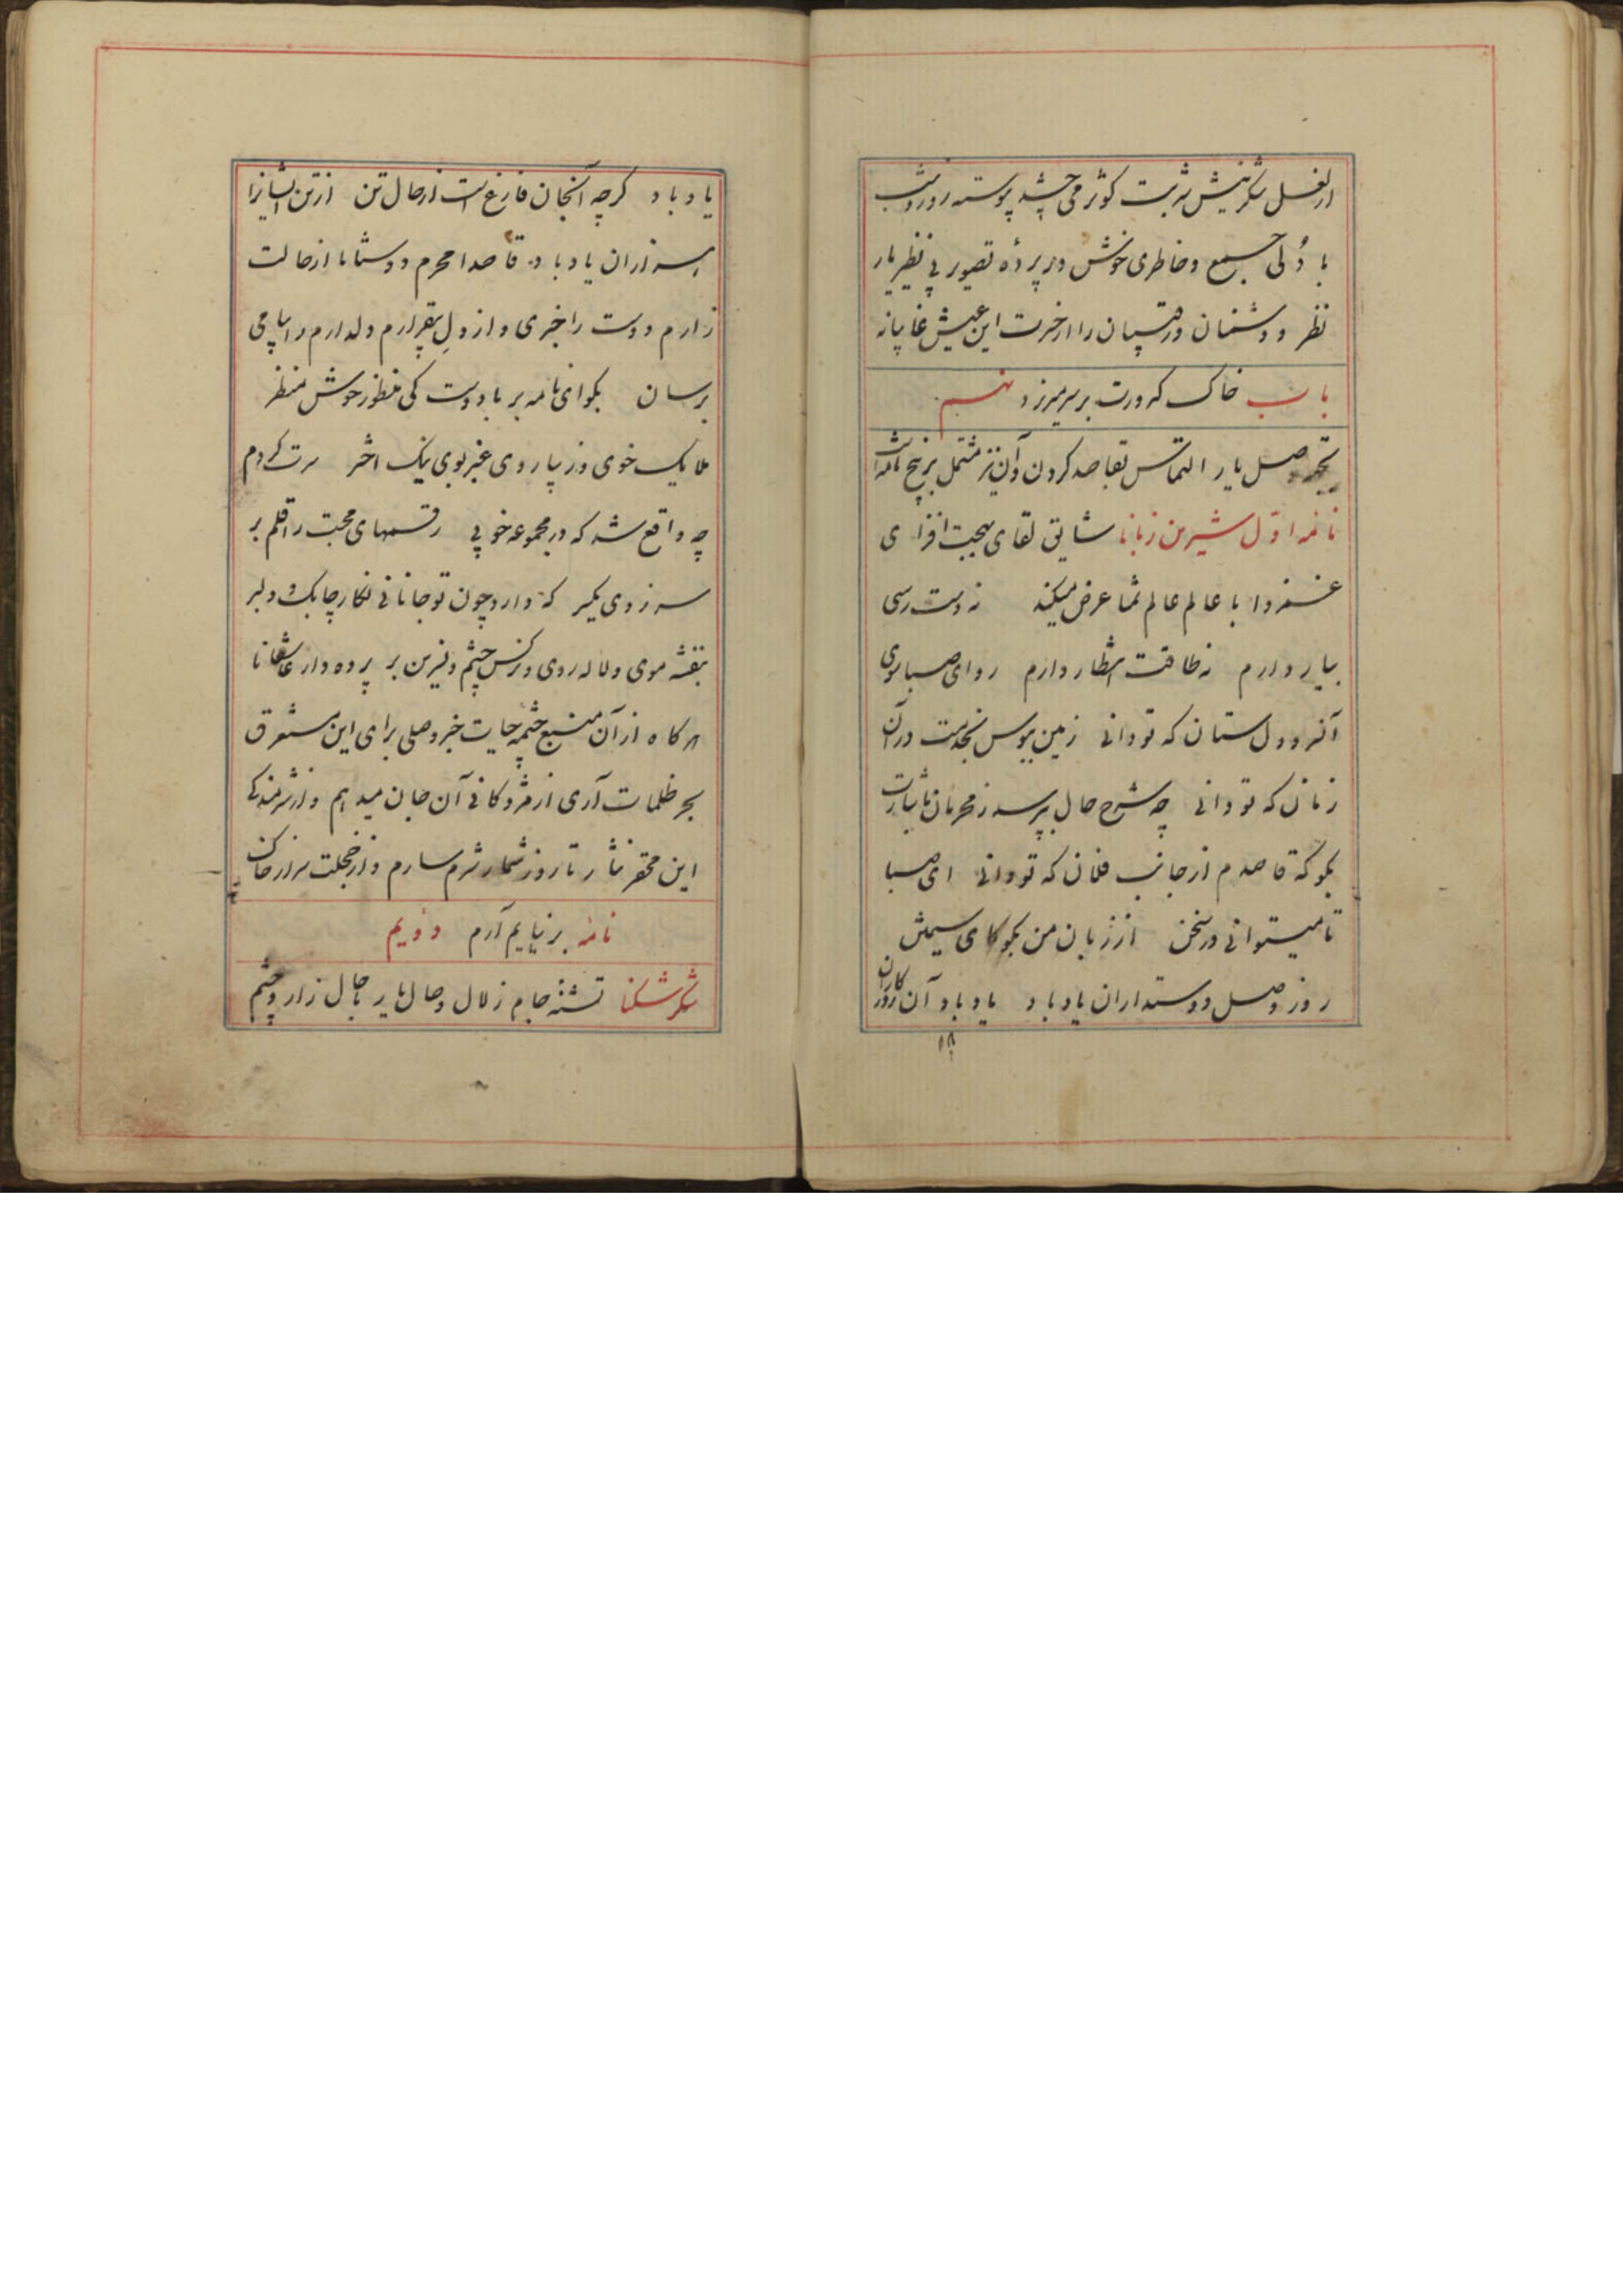 از لعل شکرینش شربت کوثر می چشد پیوسته روز و شب
با دلی جمیع و خاطری خوش در پردۀ تصویر بی نظیر یار
نظر و دشمنان و رقیبان را از خبرت این عیش غایبانه
باب خاک کدورت بر سر میریزد نهم
تجهۀ وصل یار التماس بقاصد کردن و آن نیز مشتمل بر پنج نامه است
نامۀ اول شیرین زبانا شایق لقای بهجت افزای
غمزدا با عالم عالم ثنا عرض میکند نه دست رسی
بیار دارم نه طاقت انتظار دارم رو ای صبا بسوی
آنرو دل ستان که تو دانی زمین ببوس بخدمت در آن
زمان که تو دانی چه شرح حال بپرسد ز محرمان باشارت
بکو که قاصدم از جانب فلان که تو دانی ای صبا
تا میتوانی در سخن از زبان من بکو کای سیمتن
روز وصل دوستداران یاد باد یاد باد آن روزکاران
یاد باد کرچه آنجان فارغ است از حال تن از تن ایشانرا
هزاران یاد باد قاصدا محرم دوستانا از حالت
زارم دوست را خبری و از دل بیقرارم دلدارم را پیامی
برسان بکو ای نامه بر با دوست کی منظور خوش منظر
ملایک خوی و زیبا روی عنبر بوی نیک اختر سرت کردم
چه واقع شد که در مجموعه خوبی رقمهای محبت را قلم بر
سر زدی یکسر که دارد چون تو جانانی نکار چابک و دلبر
بنفشه موی و لاله روی و نرکس چشم و نسرین بر پرده دار عاشقانا
هر کاه از آن منبع چشمه حیات خبر وصلی برای این مستغرق
بحر ظلمات آری از مژدکانی آن جان میدهم و از شرمندکی
این محقر نثار تا روز شمار شرمسارم و از خجلت سر از خاک
نامۀ بر نیایم آرم دویم
شکر شکنا تشنۀ جام زلال وصال یار با حال زار و چشم